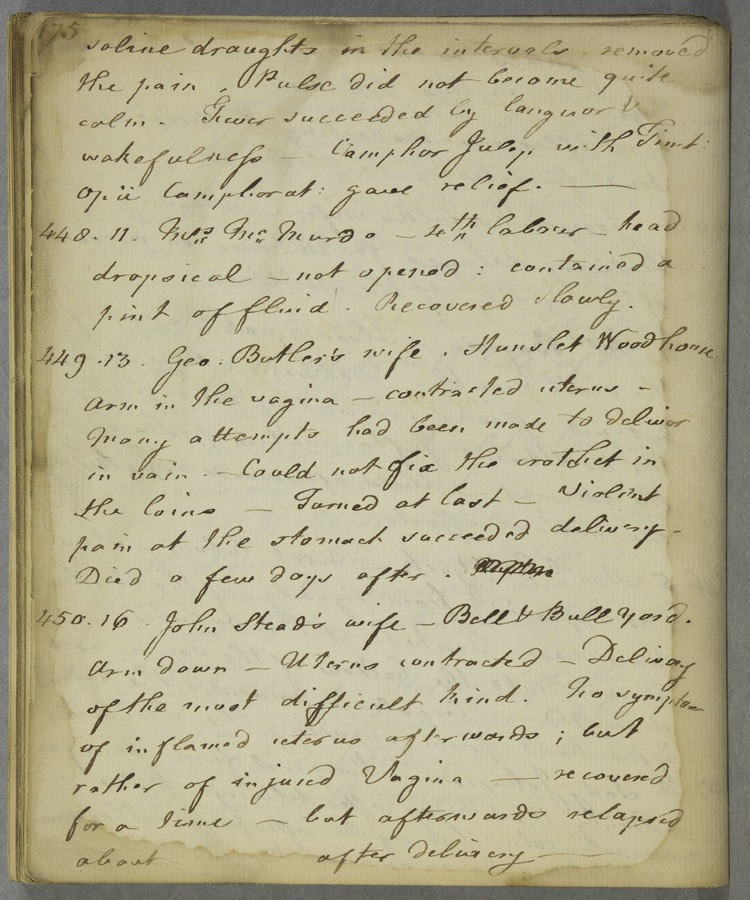 175
saline draughts in the intervals removed
the pain. Pulse did not become quite
calm. Fever succeeded by languor &
wakefulness — Camphor Julep with Tinct:
opii Camphorat: gave relief. —
448. 11. Mrs. Mc Murdo — 4th labour — head
dropsical — not opened: contained a
pint of fluid. Recovered slowly.
449. 13. Geo: Butler's wife. Hunslet Woodhouse
Arm in the vagina — contracted uterus —
Many attempts had been made to deliver
in vain. — Could not fix the crotchet in
the loins — Turned at last — Violent
pain at the stomach succeeded delivery —
Died a few days after.
450. 16. John Stead's wife — Bell & Bull Yard.
Arm down — Uterus contracted — Delivery
of the most difficult kind. No symptom
of inflamed uterus afterwards; but
rather of injured Vagina — recovered
for a time — but afterwards relapsed
about after delivery —